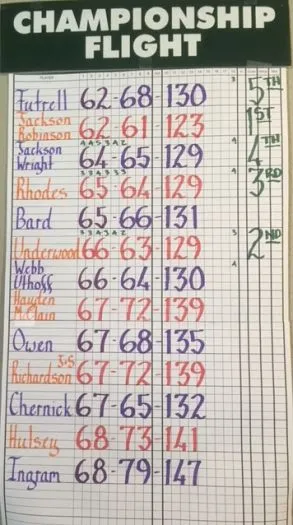 CHAMPIONSHIP
FLIGHT
PLAYER
Futrell 62-68-130 5TH
Jackson
Robinson 62-61-123 1ST
Jackson
Wright 64-65-129 4TH
Rhodes 65-64-129 3RD
Bard 65-66-131
Underwood 66-63-129 2ND
Webb
Uthoff 66-64-130
Hayden
McClain 67-72-139
Owen 67-68-135
Richardson JrS 67-72-139
Chernick 67-65-132
Hulsey 68-73-141
Ingram 68-79-147